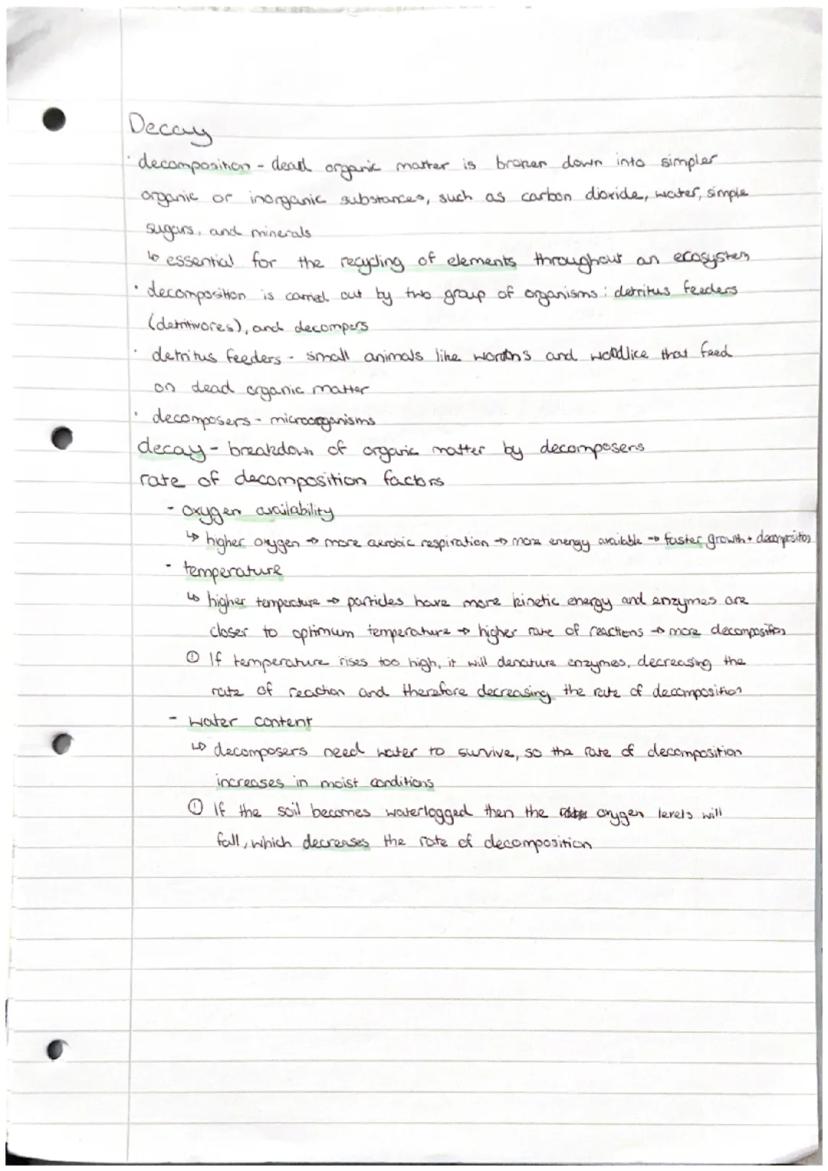 Decay
· decomposition - dead organic matter is broken down into simpler
organic or inorganic substances, such as carbon dioxide, water, simple
sugars, and minerals
↳ essential for the recycling of elements throughout an ecosystem
· decomposition is carried out by two group of organisms: detritus feeders
(detritivores), and decompers
· detritus feeders - small animals like worms and woodlice that feed
on dead organic matter
· decomposers - microorganisms
decay - breakdown of organic matter by decomposers
rate of decomposition factors
- oxygen availability
↳ higher oxygen → more aerobic respiration → more energy available → faster growth + decomposition
- temperature
↳ higher temperature → particles have more kinetic energy and enzymes are
closer to optimum temperature → higher rate of reactions → more decomposition
① If temperature rises too high, it will denature enzymes, decreasing the
rate of reaction and therefore decreasing the rate of decomposition
- water content
↳ decomposers need water to survive, so the rate of decomposition
increases in moist conditions
① If the soil becomes waterlogged then the oxygen levels will
fall, which decreases the rate of decomposition